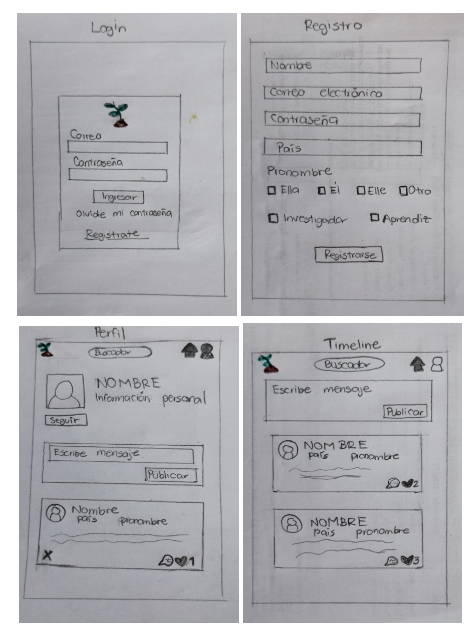 Login
Correo
Contraseña
Ingresar
Olvide mi contraseña
Registrate
Registro
Nombre
Correo electrónico
Contraseña
País
Pronombre
Ella Él Elle Otro
Investigador Aprendiz
Registrarse
Perfil
Buscador
NOMBRE
Información personal
Seguir
Escribe mensaje
Publicar
Nombre
país pronombre
1
Timeline
Buscador
Escribe mensaje
Publicar
NOMBRE
país pronombre
2
NOMBRE
país pronombre
3